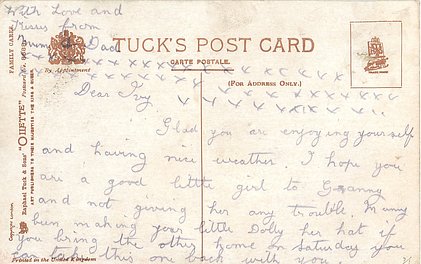 With Love and
Kisses from
Mummy & Dad
x x x x x x x x x x x x x x x
x x x x x x x x x x x x x x
TUCK'S POST CARD
CARTE POSTALE.
By Appointment
(FOR ADDRESS ONLY.)
FAMILY CARES.
Raphael Tuck & Sons' "OILETTE"
ART PUBLISHERS TO THEIR MAJESTIES THE KING & QUEEN.
Copyright London.
Dear Ivy
Glad you are enjoying yourself
and having nice weather. I hope you
are a good little girl to Granny
and not giving her any trouble. Mummy
been making your little Dolly her hat if
you bring the other home on Saturday you
can take this one back with you.
Printed in the United Kingdom